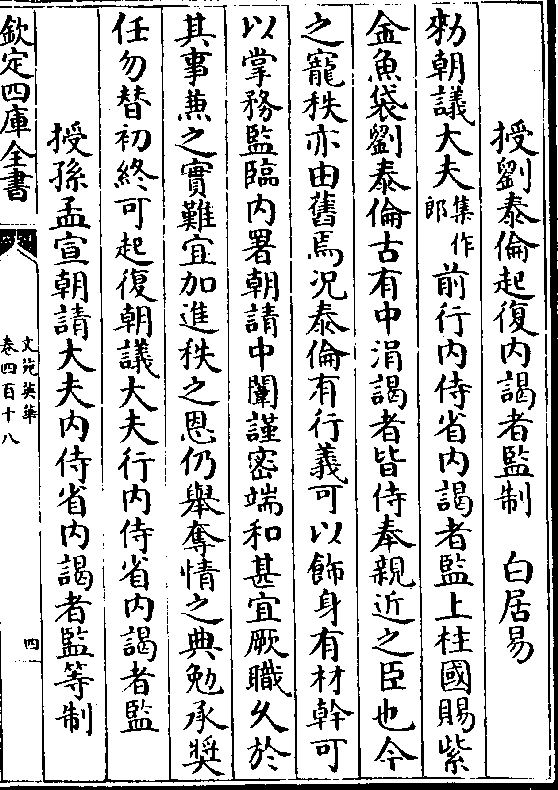 授劉泰倫起復内謁者監制　白居易
勑朝議大夫集作郎前行内侍省内謁者監上柱國賜紫
金魚袋劉泰倫古有中涓謁者皆侍奉親近之臣也今
之寵秩亦由舊焉况泰倫有行義可以飾身有材幹可
以掌務監臨内署朝請中闈謹密端和甚宜厥職久於
其事煮之實難宜加進秩之恩仍舉奪情之典勉承奨
任勿替初終可起復朝議大夫行内侍省内謁者監
授孫孟宣朝請大夫内侍省内謁者監等制
欽定四庫全書
文苑英華
卷四百十八
四